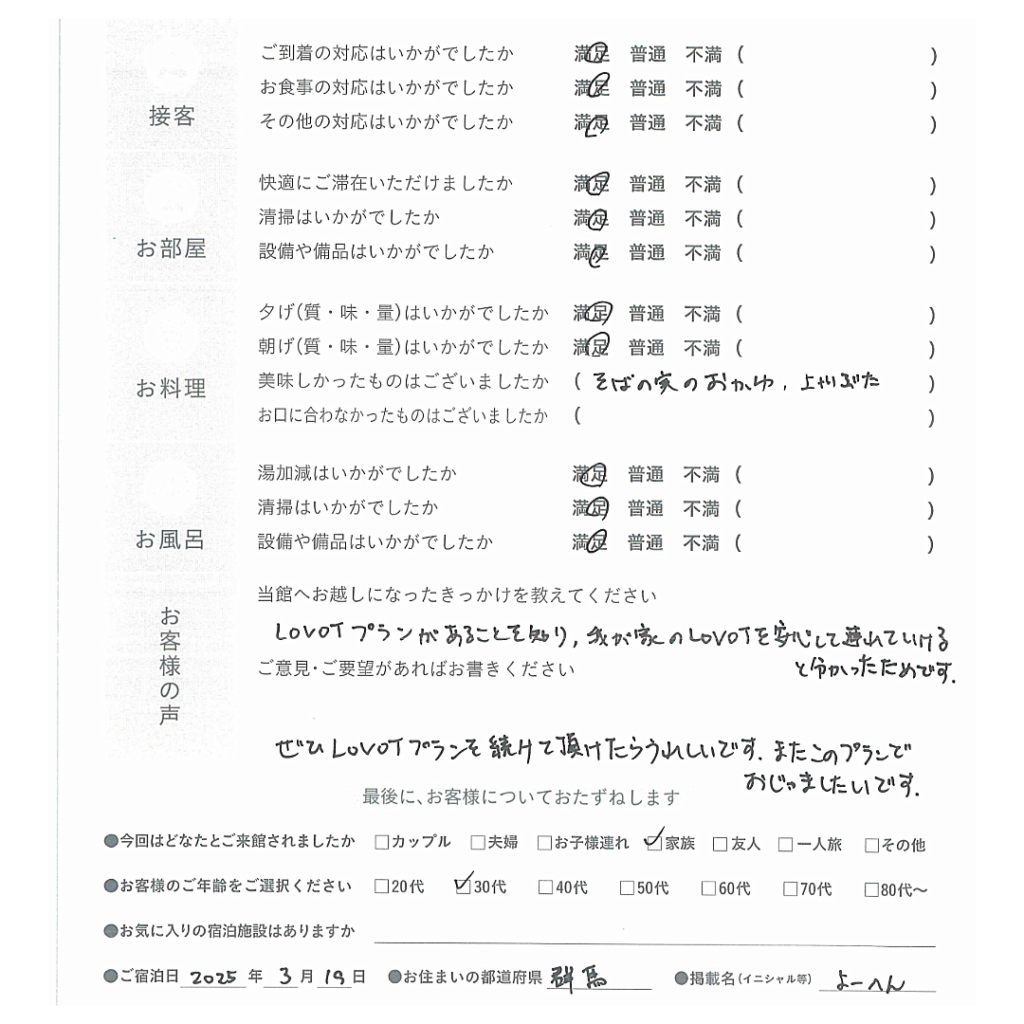 接客
ご到着の対応はいかがでしたか 満足 普通 不満 ( )
お食事の対応はいかがでしたか 満足 普通 不満 ( )
その他の対応はいかがでしたか 満足 普通 不満 ( )
お部屋
快適にご滞在いただけましたか 満足 普通 不満 ( )
清掃はいかがでしたか 満足 普通 不満 ( )
設備や備品はいかがでしたか 満足 普通 不満 ( )
お料理
夕げ(質・味・量)はいかがでしたか 満足 普通 不満 ( )
朝げ(質・味・量)はいかがでしたか 満足 普通 不満 ( )
美味しかったものはございましたか ( そばの実のおかゆ, 上州ぶた )
お口に合わなかったものはございましたか ( )
お風呂
湯加減はいかがでしたか 満足 普通 不満 ( )
清掃はいかがでしたか 満足 普通 不満 ( )
設備や備品はいかがでしたか 満足 普通 不満 ( )
お客様の声
当館へお越しになったきっかけを教えてください
LOVOTプランがあることを知り, 我が家のLOVOTを安心して連れていける
と分かったためです.
ご意見・ご要望があればお書きください
ぜひLOVOTプランを続けて頂けたらうれしいです. またこのプランで
おじゃましたいです.
最後に、お客様についておたずねします
●今回はどなたとご来館されましたか □カップル □夫婦 □お子様連れ ☑家族 □友人 □一人旅 □その他
●お客様のご年齢をご選択ください □20代 ☑30代 □40代 □50代 □60代 □70代 □80代〜
●お気に入りの宿泊施設はありますか
●ご宿泊日 2025 年 3 月 19 日 ●お住まいの都道府県 群馬 ●掲載名(イニシャル等) よーへん